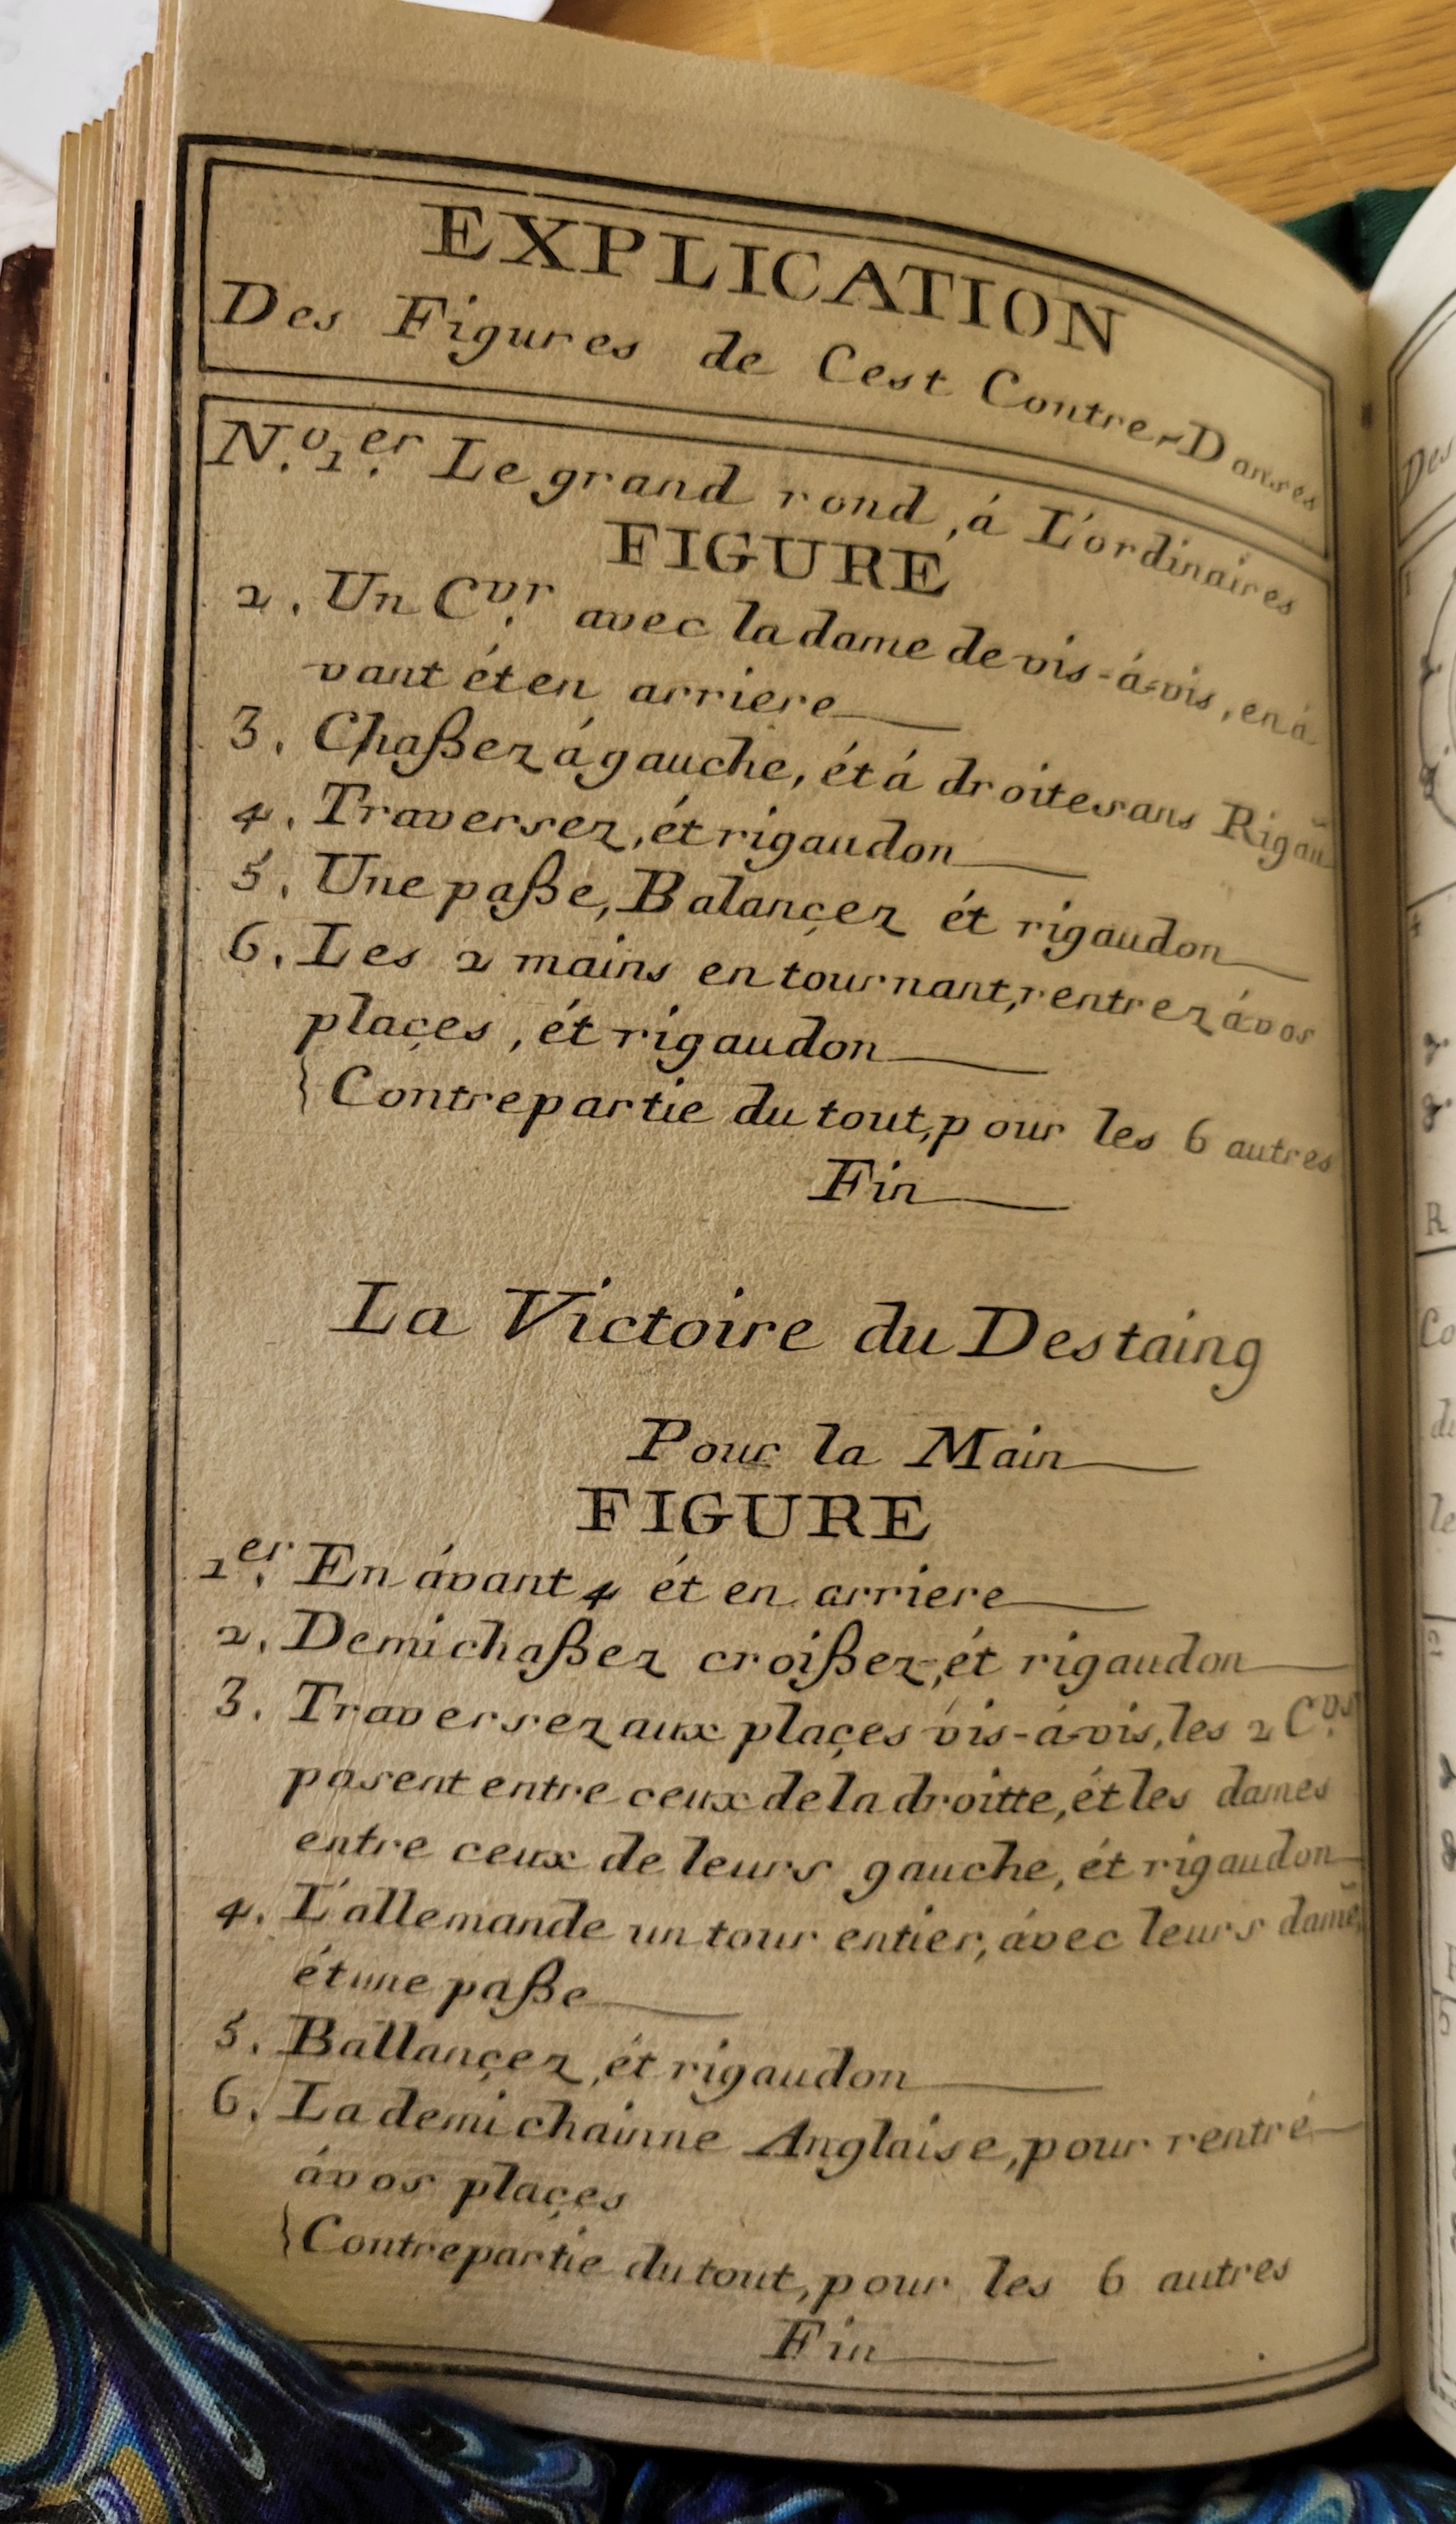 EXPLICATION
Des Figures de Cest Contre-Danses
N.º 1.er Le grand rond, á L'ordinaires
FIGURE
2. Un C.vr avec la dame de vis-á-vis, en á
vant ét en arriere
3. Chaßez á gauche, ét á droite sans Rigau
4. Traversez, ét rigaudon
5. Une paße, Balançez ét rigaudon
6. Les 2 mains en tournant, rentrez á vos
plaçes, ét rigaudon
{Contrepartie du tout, pour les 6 autres
Fin
La Victoire du Destaing
Pour la Main
FIGURE
1.er En ávant 4 ét en arriere
2. Demi chaßez croißez, ét rigaudon
3. Traversez aux plaçes vis-á-vis, les 2 C.vrs
pasent entre ceux de la droitte, ét les dames
entre ceux de leurs gauche, ét rigaudon
4. L'allemande un tour entier, ávec leurs dame
ét une paße
5. Ballançez, ét rigaudon
6. La demi chainne Anglaise, pour rentré
á vos plaçes
{Contrepartie du tout, pour les 6 autres
Fin
Des
R
Co
di
le